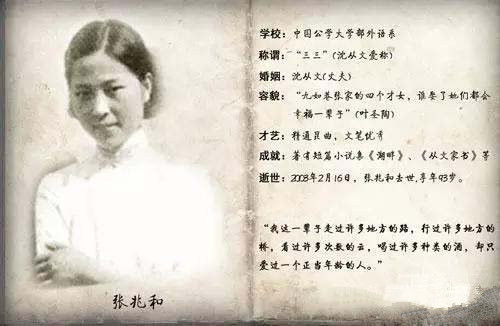 学校：中国公学大学部外语系
称谓：“三三”(沈从文爱称)
婚姻：沈从文(丈夫)
容貌：“九如巷张家的四个才女，谁娶了她们都会
幸福一辈子”(叶圣陶)
才艺：精通昆曲，文笔优秀
成就：著有短篇小说集《湖畔》、《从文家书》等
逝世：2003年2月16日，张兆和去世，享年93岁。
“我这一辈子走过许多地方的路，行过许多地方的
桥，看过许多次数的云，喝过许多种类的酒，却只
爱过一个正当年龄的人。”
张兆和